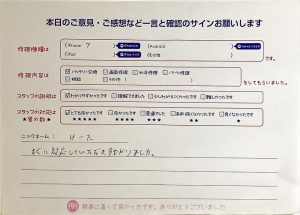 本日のご意見・ご感想など一言と確認のサインお願いします
修理機種は
iPhone 7
Android
iPad
その他
修理内容は
バッテリー交換
画面修理
水没修理
パーツ修理
相談
その他
をしてもらいました。
スタッフの説明は
わかりやすかったです
スタッフの対応は
★星の数★
とても良かった
良かった
普通でした
良くなかった
★★★★★
★★★★
★★★
★★
★
ニックネーム：
すぐに対応していただき助かりました。
無事に直って良かったです。ありがとうございました